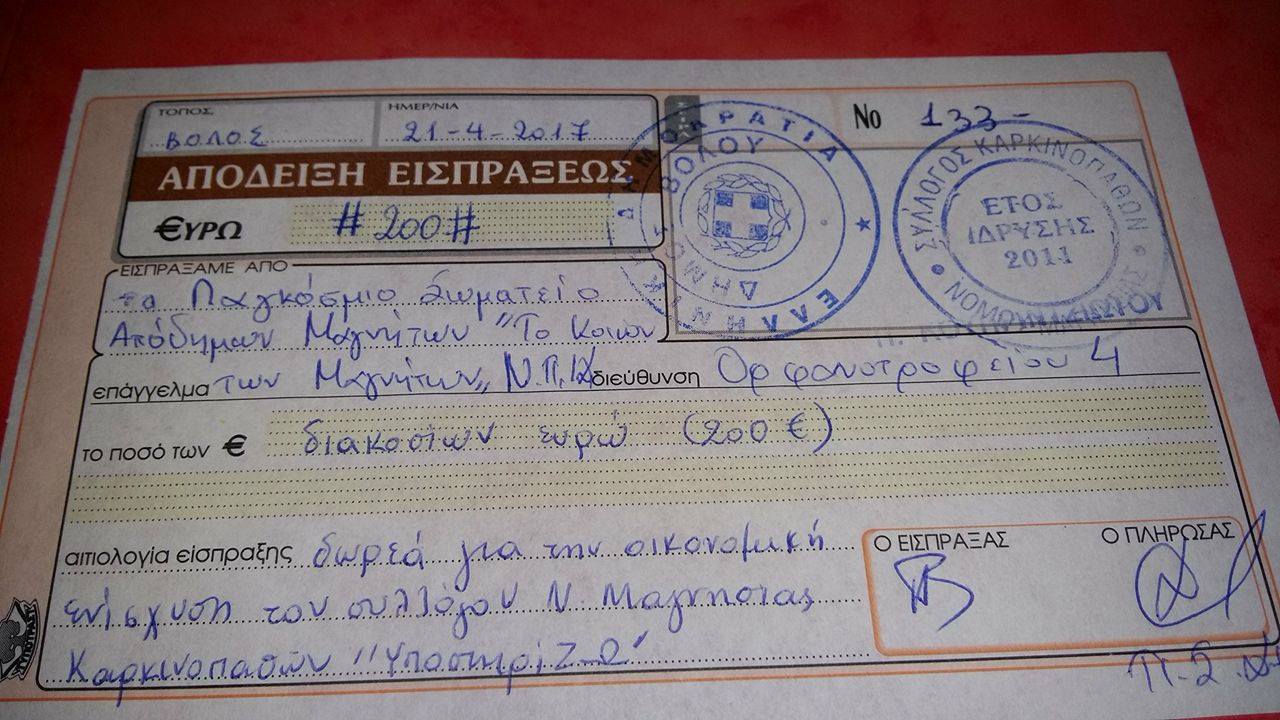 ΤΟΠΟΣ ΗΜΕΡ/ΝΙΑ
ΒΟΛΟΣ 21-4-2017
Νο 133-
ΑΠΟΔΕΙΞΗ ΕΙΣΠΡΑΞΕΩΣ
€ΥΡΩ #200#
ΕΛΛΗΝΙΚΗ ΔΗΜΟΚΡΑΤΙΑ
ΔΗΜΟΣ ΒΟΛΟΥ
ΣΥΛΛΟΓΟΣ ΚΑΡΚΙΝΟΠΑΘΩΝ
ΕΤΟΣ
ΙΔΡΥΣΗΣ
2011
ΕΙΣΠΡΑΞΑΜΕ ΑΠΟ
το Παγκόσμιο Σωματείο
Απόδημων Μαγνήτων "Το Κοινόν
επάγγελμα των Μαγνήτων" διεύθυνση Ορφανοτροφείου 4
το ποσό των € διακοσίων ευρώ (200 €)
αιτιολογία είσπραξης δωρεά για την οικονομική
ενίσχυση του συλλόγου Ν. Μαγνησίας
Καρκινοπαθών "ΥποστηρίΖ-Ω"
Ο ΕΙΣΠΡΑΞΑΣ Ο ΠΛΗΡΩΣΑΣ